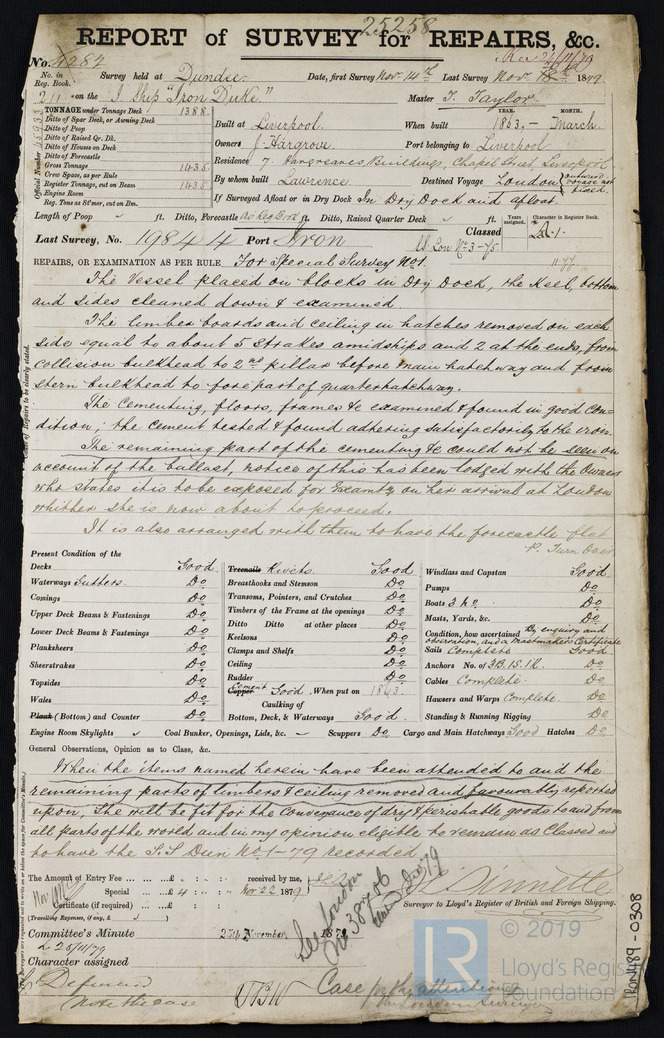 25258
REPORT of SURVEY for REPAIRS, &c.
No. 4287
No. in Reg. Book. Survey held at Dundee. Date, first Survey Nov. 14th Last Survey Nov. 18th 1879
211 on the I Ship "Iron Duke." Master T. Taylor
TONNAGE under Tonnage Deck 1388
Ditto of Spar Deck, or Awning Deck
Ditto of Poop
Ditto of Raised Qr. Dk.
Ditto of Houses on Deck
Ditto of Forecastle
Gross Tonnage 1435
Crew Space, as per Rule
Register Tonnage, cut on Beam 1435
Engine Room
Reg. Tons as St'mer, cut on Bm.
Official Number 45933
Built at Liverpool. When built YEAR. 1863,- MONTH. March
Owners J. Hargrove. Port belonging to Liverpool
Residence 7. Hargreaves Buildings, Chapel Street, Liverpool
By whom built Lawrence. Destined Voyage London (outward voyage not fixed.
If Surveyed Afloat or in Dry Dock In Dry Dock and afloat.
Length of Poop ft. Ditto, Forecastle as Reg. Book ft. Ditto, Raised Quarter Deck ft. Years assigned. Character in Register Book.
Classed A.1.
Last Survey, No. 19844 Port Iron
Lon No 3-75
11.77
REPAIRS, OR EXAMINATION AS PER RULE For Special Survey No 1
The Vessel placed on blocks in Dry Dock, the Keel, bottom
and sides cleaned down & examined.
The limber boards and ceiling in hatches removed on each
side equal to about 5 strakes amidships and 2 at the ends, from
collision bulkhead to 2nd pillar before main hatchway and from
stern bulkhead to fore part of quarter hatchway.
The Cementing, floors, frames &c examined & found in good con-
dition; the cement tested & found adhering satisfactorily to the iron.
The remaining part of the cementing &c could not be seen on
account of the ballast, notice of this has been lodged with the Owners
who states it is to be exposed for Examtn on her arrival at London
whither she is now about to proceed.
It is also arranged with them to have the forecastle flat
P. Turn Over
Present Condition of the
Decks Good
Waterways Gutters Do
Comings Do
Upper Deck Beams & Fastenings Do
Lower Deck Beams & Fastenings Do
Planksheers Do
Sheerstrakes Do
Topsides Do
Wales Do
Plank (Bottom) and Counter Do
Treenails Rivets. Good
Breasthooks and Stemson Do
Transoms, Pointers, and Crutches Do
Timbers of the Frame at the openings Do
Ditto Ditto at other places Do
Keelsons Do
Clamps and Shelfs Do
Ceiling Do
Rudder Do
Copper Cement Good. When put on 1863.
Caulking of
Bottom, Deck, & Waterways Good.
Windlass and Capstan Good
Pumps Do
Boats 3 No Do
Masts, Yards, &c. Do
Condition, how ascertained By enquiry and
observation, and a mastmaker's Certificate
Sails Complete Good
Anchors No. of 3B.1S.1K. Do
Cables Complete. Do
Hawsers and Warps Complete Do
Standing & Running Rigging Do
Engine Room Skylights Coal Bunker, Openings, Lids, &c. Scuppers Do Cargo and Main Hatchways Good Hatches Do
General Observations, Opinion as to Class, &c.
When the items named herein have been attended to and the
remaining parts of limbers & ceiling removed and favourably reported
upon, She will be fit for the Conveyance of dry & perishable goods to and from
all parts of the world and in my opinion eligible to remain as Classed and
to have the S.S Dun No 1-79 recorded
The Amount of Entry Fee ... £ : : received by me,
Special ... £ 4 : : Nov 22 1879
Certificate (if required) ... £ : :
(Travelling Expenses, if any, £ )
Surveyor to Lloyd's Register of British and Foreign Shipping.
Committee's Minute 25th November, 1879
Character assigned
Deferred
Note the case
See London
No 38706
Case for the attention of
the London Surveyors
© 2019
LR
Lloyd's Register
Foundation
IRON489-0308